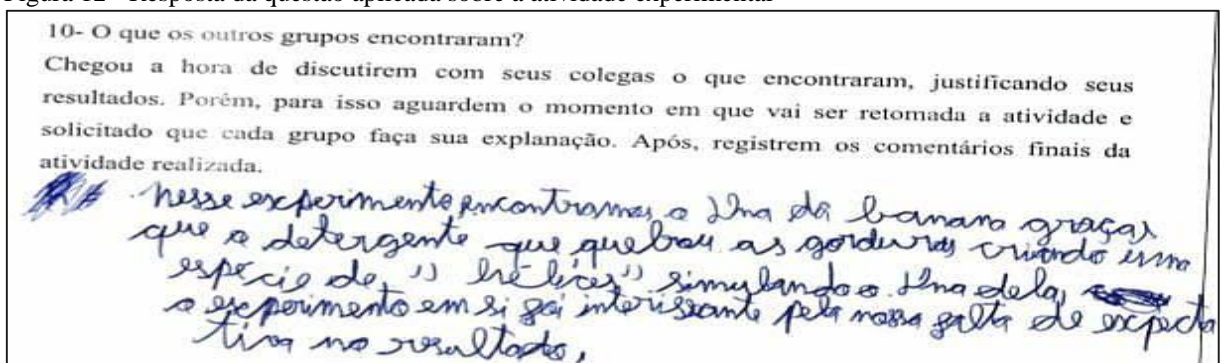 Figura 12 - Resposta da questão aplicada sobre a atividade experimental
10- O que os outros grupos encontraram?
Chegou a hora de discutirem com seus colegas o que encontraram, justificando seus
resultados. Porém, para isso aguardem o momento em que vai ser retomada a atividade e
solicitado que cada grupo faça sua explanação. Após, registrem os comentários finais da
atividade realizada.
nesse experimento encontramos o Dna da banana graças
que o detergente que quebrou as gorduras criando uma
espécie de "hélices" simulando o Dna dela,
o experimento em si foi interissante pela nossa falta de expecta
tiva no resultado,